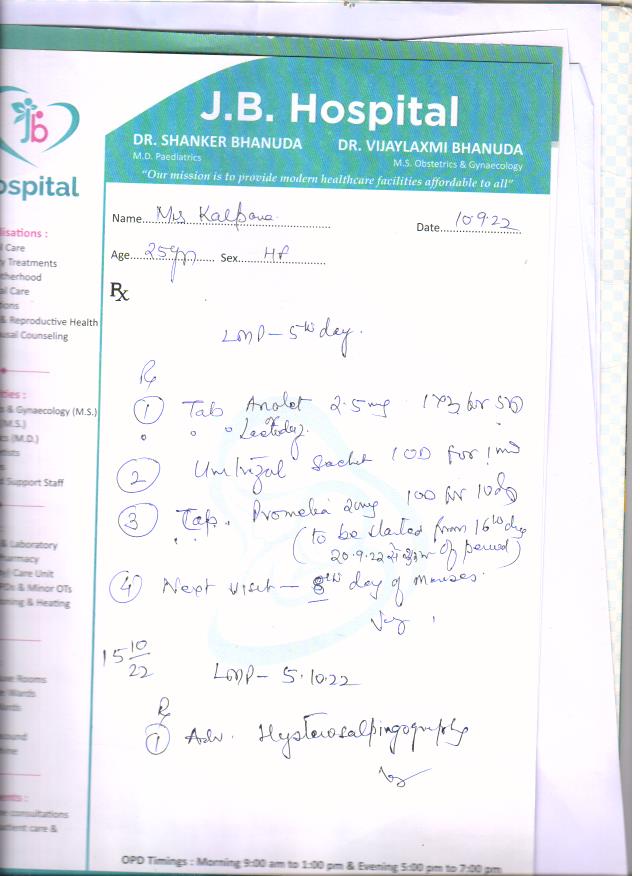 J.B. Hospital
DR. SHANKER BHANUDA
M.D. Paediatrics
DR. VIJAYLAXMI BHANUDA
M.S. Obstetrics & Gynaecology
"Our mission is to provide modern healthcare facilities affordable to all"
ospital
lisations :
l Care
y Treatments
therhood
al Care
ions
& Reproductive Health
usal Counseling
ties :
s & Gynaecology (M.S.)
M.S.)
s (M.D.)
tists
Support Staff
& Laboratory
harmacy
el Care Unit
PDs & Minor OTs
oning & Heating
use Rooms
e Wards
Wards
ound
ine
ents :
e consultations
atient care &
Name Mrs Kalpana
Date 10.9.22
Age 25 Sex
Rx
LMP - 5th day.
Rx
① Tab 2.5mg for
② Sachet 1OD for 1
③ 1OD for
(to be started from 16th day
20.9.22 of period)
④ Next visit - 8th day of menses.
15 10/22
LMP - 5.10.22
Rx
① Adv. Hysterosalpingography
OPD Timings : Morning 9:00 am to 1:00 pm & Evening 5:00 pm to 7:00 pm